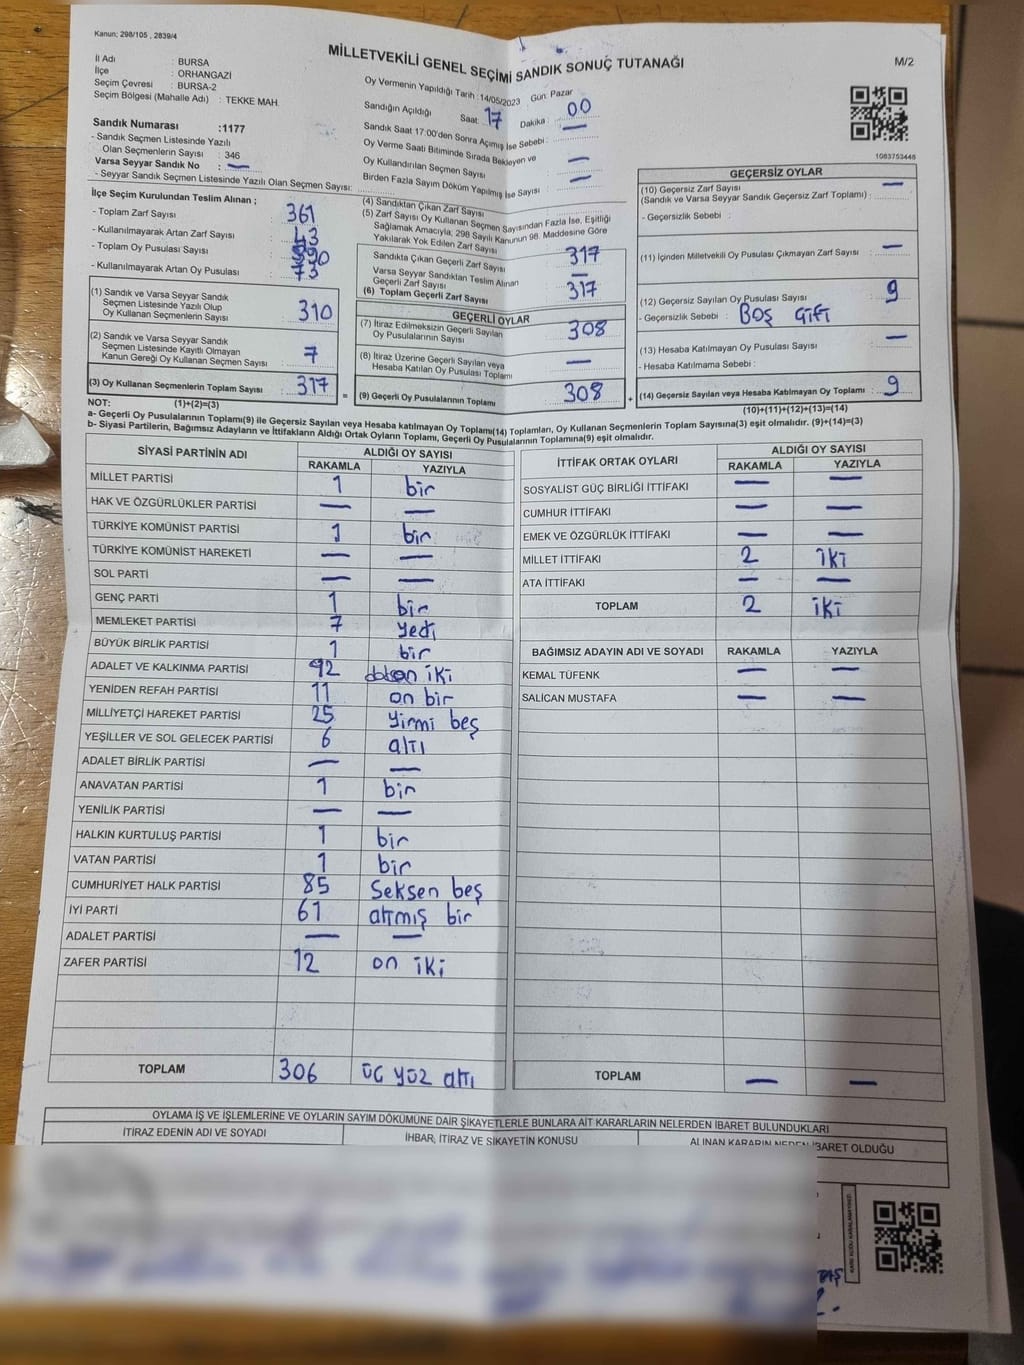 Kanun; 298/105 , 2839/4
MİLLETVEKİLİ GENEL SEÇİMİ SANDIK SONUÇ TUTANAĞI
M/2
İl Adı : BURSA
İlçe : ORHANGAZİ
Seçim Çevresi : BURSA-2
Seçim Bölgesi (Mahalle Adı) : TEKKE MAH.
Sandık Numarası :1177
- Sandık Seçmen Listesinde Yazılı
Olan Seçmenlerin Sayısı : 346
Varsa Seyyar Sandık No : —
- Seyyar Sandık Seçmen Listesinde Yazılı Olan Seçmen Sayısı:
Oy Vermenin Yapıldığı Tarih :14/05/2023 Gün: Pazar
Sandığın Açıldığı Saat: 17 Dakika : 00
Sandık Saat 17:00'den Sonra Açımış İse Sebebi: —
Oy Verme Saati Bitiminde Sırada Bekleyen ve
Oy Kullandırılan Seçmen Sayısı —
Birden Fazla Sayım Döküm Yapılmış İse Sayısı : —
1083753448
İlçe Seçim Kurulundan Teslim Alınan ;
- Toplam Zarf Sayısı 361
- Kullanılmayarak Artan Zarf Sayısı : 43
- Toplam Oy Pusulası Sayısı : 390
- Kullanılmayarak Artan Oy Pusulası : 73
(1) Sandık ve Varsa Seyyar Sandık
Seçmen Listesinde Yazılı Olup
Oy Kullanan Seçmenlerin Sayısı 310
(2) Sandık ve Varsa Seyyar Sandık
Seçmen Listesinde Kayıtlı Olmayan
Kanun Gereği Oy Kullanan Seçmen Sayısı 7
(3) Oy Kullanan Seçmenlerin Toplam Sayısı 317 =
(4) Sandıktan Çıkan Zarf Sayısı
(5) Zarf Sayısı Oy Kullanan Seçmen Sayısından Fazla İse, Eşitliği
Sağlamak Amacıyla, 298 Sayılı Kanunun 98. Maddesine Göre
Yakılarak Yok Edilen Zarf Sayısı
Sandıkta Çıkan Geçerli Zarf Sayısı 317
Varsa Seyyar Sandıktan Teslim Alınan
Geçerli Zarf Sayısı —
(6) Toplam Geçerli Zarf Sayısı 317
GEÇERLİ OYLAR
(7) İtiraz Edilmeksizin Geçerli Sayılan
Oy Pusulalarının Sayısı 308
(8) İtiraz Üzerine Geçerli Sayılan veya
Hesaba Katılan Oy Pusulası Toplamı —
(9) Geçerli Oy Pusulalarının Toplamı 308 +
GEÇERSİZ OYLAR
(10) Geçersiz Zarf Sayısı
(Sandık ve Varsa Seyyar Sandık Geçersiz Zarf Toplamı) : —
- Geçersizlik Sebebi :
(11) İçinden Milletvekili Oy Pusulası Çıkmayan Zarf Sayısı : —
(12) Geçersiz Sayılan Oy Pusulası Sayısı : 9
- Geçersizlik Sebebi : BOŞ Çift
(13) Hesaba Katılmayan Oy Pusulası Sayısı : —
- Hesaba Katılmama Sebebi :
(14) Geçersiz Sayılan veya Hesaba Katılmayan Oy Toplamı : 9
NOT: (1)+(2)=(3)
(10)+(11)+(12)+(13)=(14)
a- Geçerli Oy Pusulalarının Toplamı(9) ile Geçersiz Sayılan veya Hesaba katılmayan Oy Toplamı(14) Toplamları, Oy Kullanan Seçmenlerin Toplam Sayısına(3) eşit olmalıdır. (9)+(14)=(3)
b- Siyasi Partilerin, Bağımsız Adayların ve İttifakların Aldığı Ortak Oyların Toplamı, Geçerli Oy Pusulalarının Toplamına(9) eşit olmalıdır.
SİYASİ PARTİNİN ADI ALDIĞI OY SAYISI
RAKAMLA YAZIYLA
MİLLET PARTİSİ 1 bir
HAK VE ÖZGÜRLÜKLER PARTİSİ — —
TÜRKİYE KOMÜNİST PARTİSİ 1 bir
TÜRKİYE KOMÜNİST HAREKETİ — —
SOL PARTİ — —
GENÇ PARTİ 1 bir
MEMLEKET PARTİSİ 7 yedi
BÜYÜK BİRLİK PARTİSİ 1 bir
ADALET VE KALKINMA PARTİSİ 92 doksan iki
YENİDEN REFAH PARTİSİ 11 on bir
MİLLİYETÇİ HAREKET PARTİSİ 25 yirmi beş
YEŞİLLER VE SOL GELECEK PARTİSİ 6 altı
ADALET BİRLİK PARTİSİ — —
ANAVATAN PARTİSİ 1 bir
YENİLİK PARTİSİ — —
HALKIN KURTULUŞ PARTİSİ 1 bir
VATAN PARTİSİ 1 bir
CUMHURİYET HALK PARTİSİ 85 Seksen beş
İYİ PARTİ 61 atmış bir
ADALET PARTİSİ — —
ZAFER PARTİSİ 12 on iki
TOPLAM 306 üç yüz altı
İTTİFAK ORTAK OYLARI ALDIĞI OY SAYISI
RAKAMLA YAZIYLA
SOSYALİST GÜÇ BİRLİĞİ İTTİFAKI — —
CUMHUR İTTİFAKI — —
EMEK VE ÖZGÜRLÜK İTTİFAKI — —
MİLLET İTTİFAKI 2 iki
ATA İTTİFAKI — —
TOPLAM 2 iki
BAĞIMSIZ ADAYIN ADI VE SOYADI RAKAMLA YAZIYLA
KEMAL TÜFENK — —
SALİCAN MUSTAFA — —
TOPLAM — —
OYLAMA İŞ VE İŞLEMLERİNE VE OYLARIN SAYIM DÖKÜMÜNE DAİR ŞİKAYETLERLE BUNLARA AİT KARARLARIN NELERDEN İBARET BULUNDUKLARI
İTİRAZ EDENİN ADI VE SOYADI İHBAR, İTİRAZ VE ŞİKAYETİN KONUSU ALINAN KARARIN NEDEN İBARET OLDUĞU